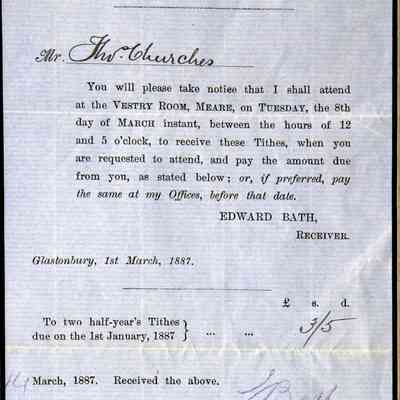 Mr. Thos. Churches
You will please take notice that I shall attend
at the VESTRY ROOM, MEARE, on TUESDAY, the 8th
day of MARCH instant, between the hours of 12
and 5 o'clock, to receive these Tithes, when you
are requested to attend, and pay the amount due
from you, as stated below; or, if preferred, pay
the same at my Offices, before that date.
EDWARD BATH,
RECEIVER.
Glastonbury, 1st March, 1887.
£ s. d.
To two half-year's Tithes
due on the 1st January, 1887 } ... ... 3/5
March, 1887. Received the above.